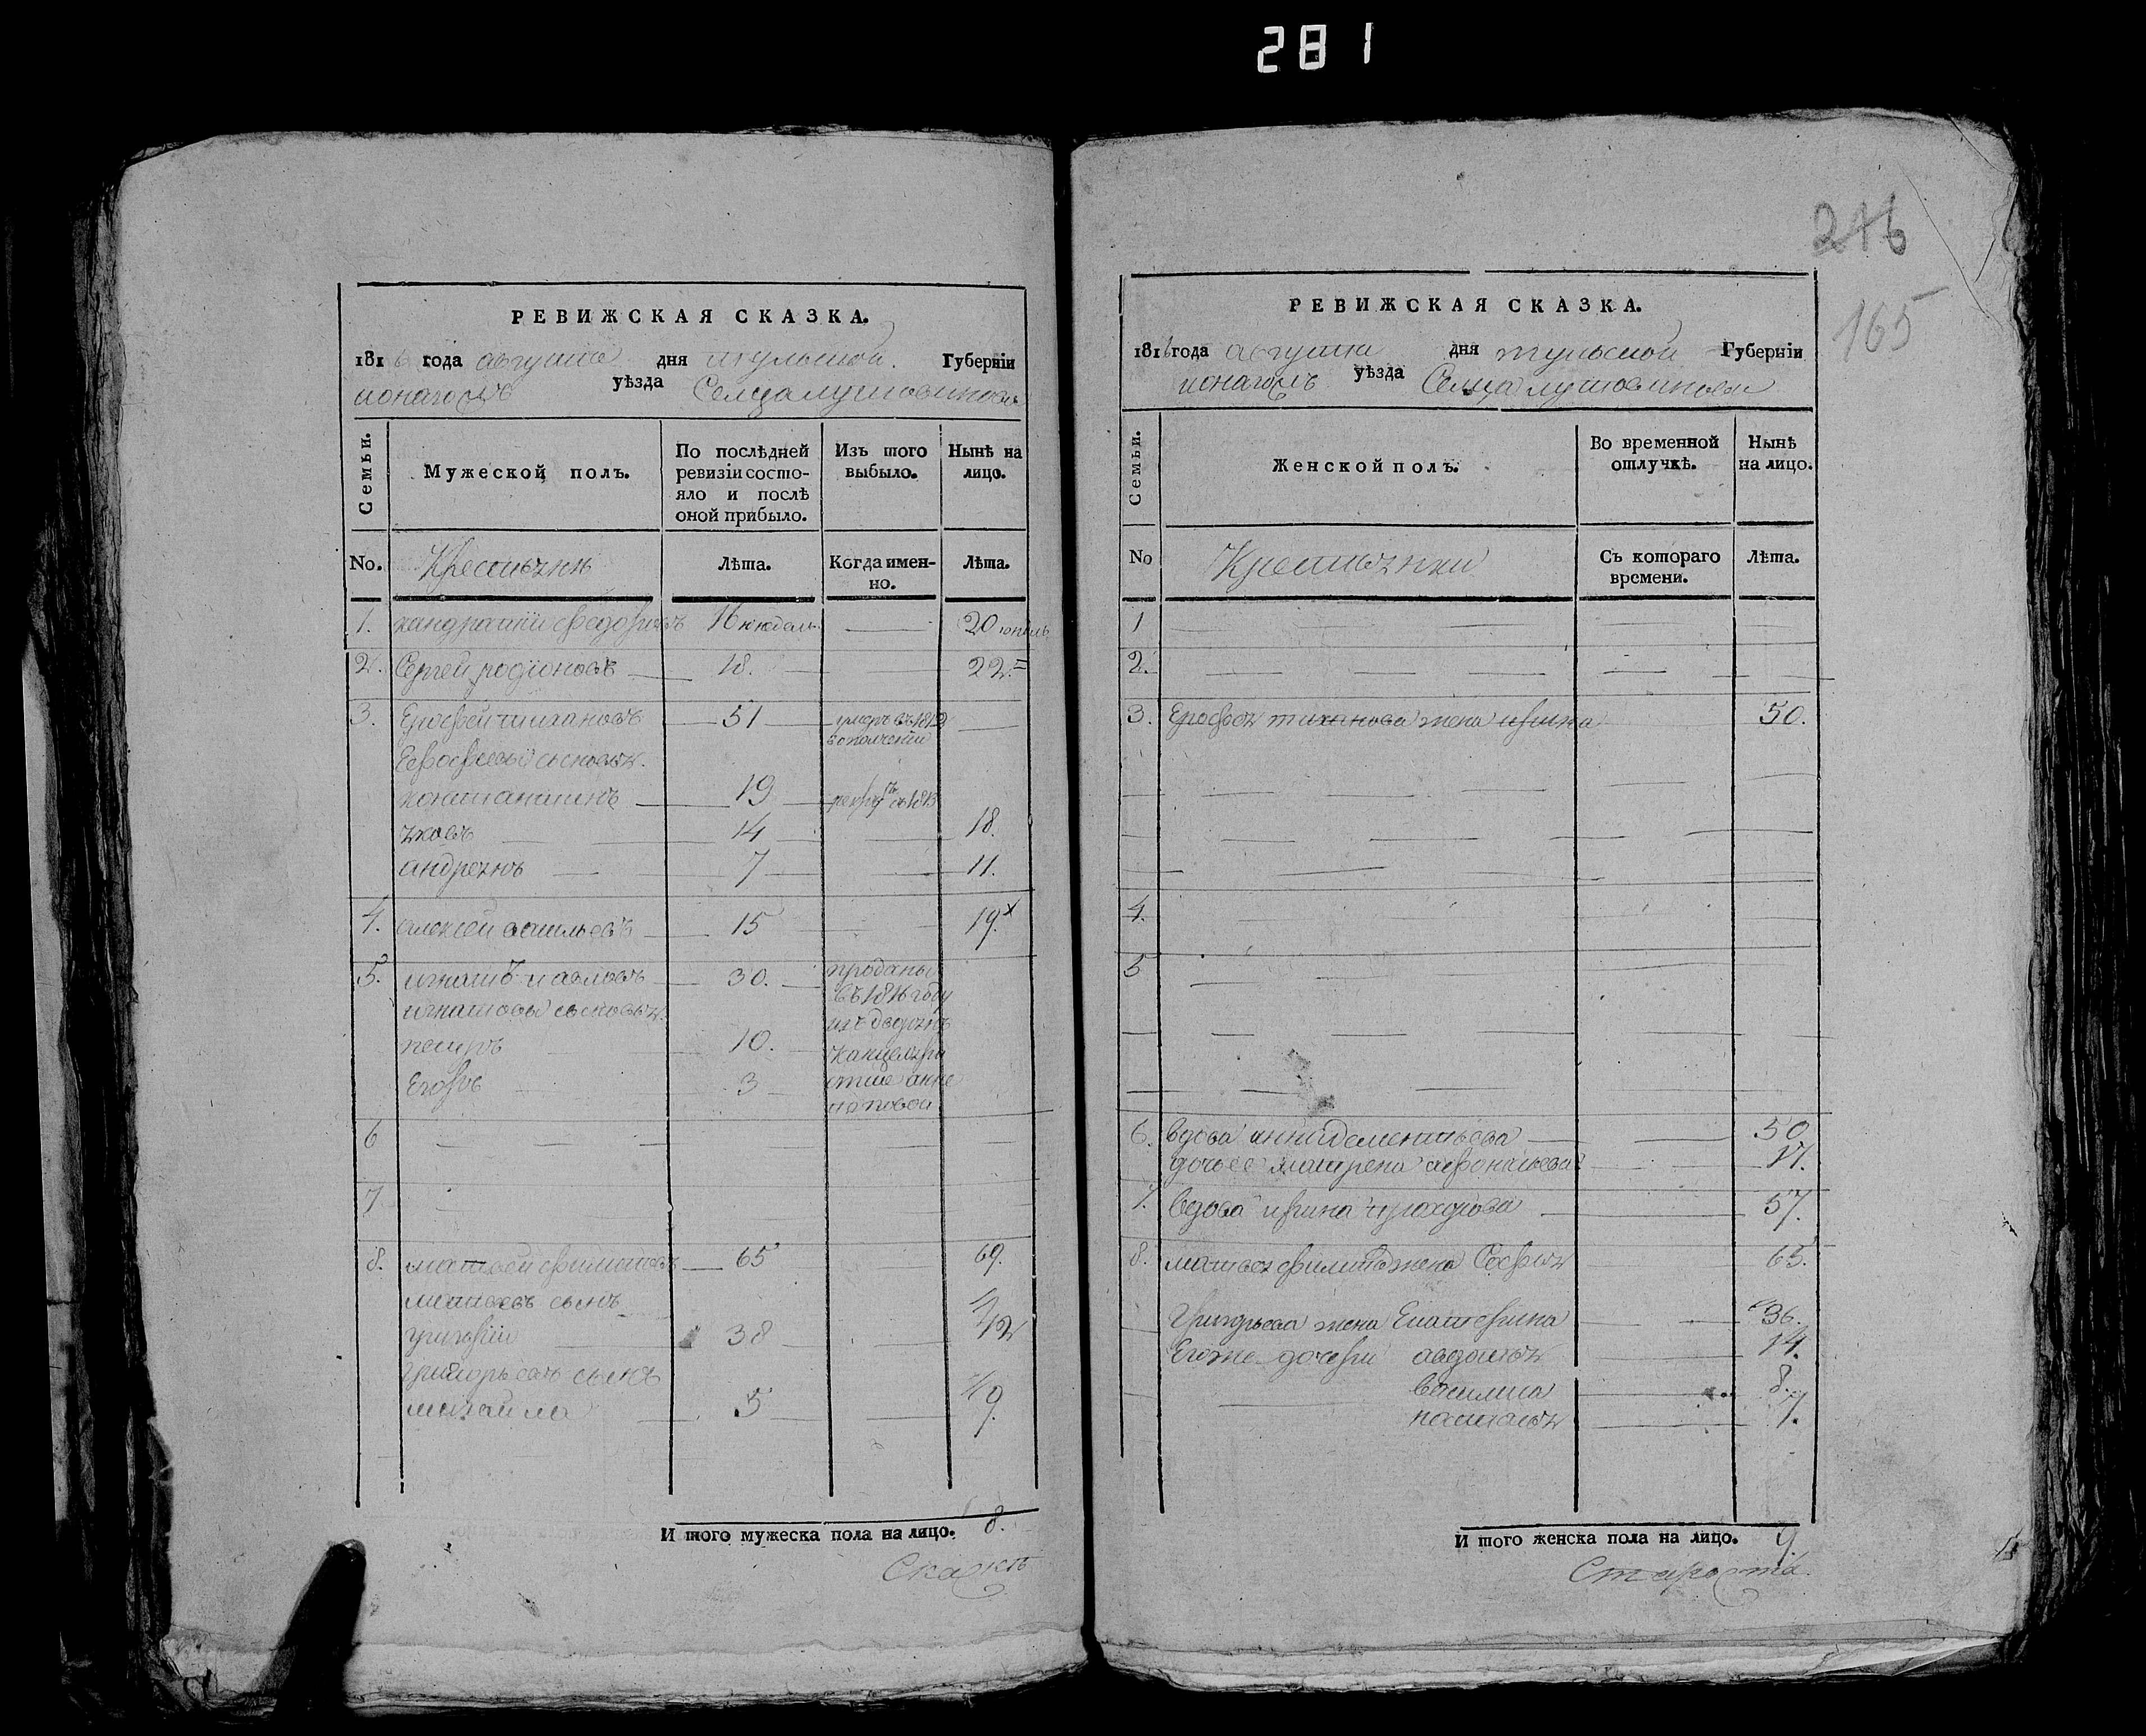 281
РЕВИЖСКАЯ СКАЗКА.
1816 года августа дня тульской Губерніи
уѣзда Селца лутовинова
Семьи.
Мужеской полъ.
По послѣдней ревизіи состо-
яло и послѣ
оной прибыло.
Изъ того
выбыло.
Нынѣ на
лицо.
No.
Крестьянѣ
Лѣта.
Когда имен-
но.
Лѣта.
1. кандратій федоровъ 16 20
2. Сергей родіоновъ 18. 22
3. Ерофей тихановъ 51 умеръ въ 1812
в ополченіи
Ерофеевы сыновья
константинъ 19 въ 1813
яковъ 14 18.
андреянъ 7 11.
4. алексей васильевъ 15 19.
5. игнатъ павловъ 30. проданы
въ 1816 году
игнатовы сыновья
петръ 10.
Егоръ 3
6
7
8. матвей филиповъ 65 69.
матвеевъ сынъ
григорій 38 42
григорьевъ сынъ
михайла 5 9.
И того мужеска пола на лицо. 8.
246
165
РЕВИЖСКАЯ СКАЗКА.
1816 года августа дня тульской Губерніи
уѣзда Селца лутовинова
Семьи.
Женской полъ.
Во временной
отлучкѣ.
Нынѣ
на лицо.
No
Крестьянки
Съ котораго
времени.
Лѣта.
1
2.
3. Ерофея тиханова жена ирина 50.
4.
5
6. вдова анна дементьева 50
дочь ее матрена 17.
7. вдова ирина прохорова 57.
8. матвея филипова жена Софья 65.
Григорьева жена Екатерина 36.
Егоже дочери авдотья 14.
василиса 8.
наталья 7.
И того женска пола на лицо. 9.
Староста.